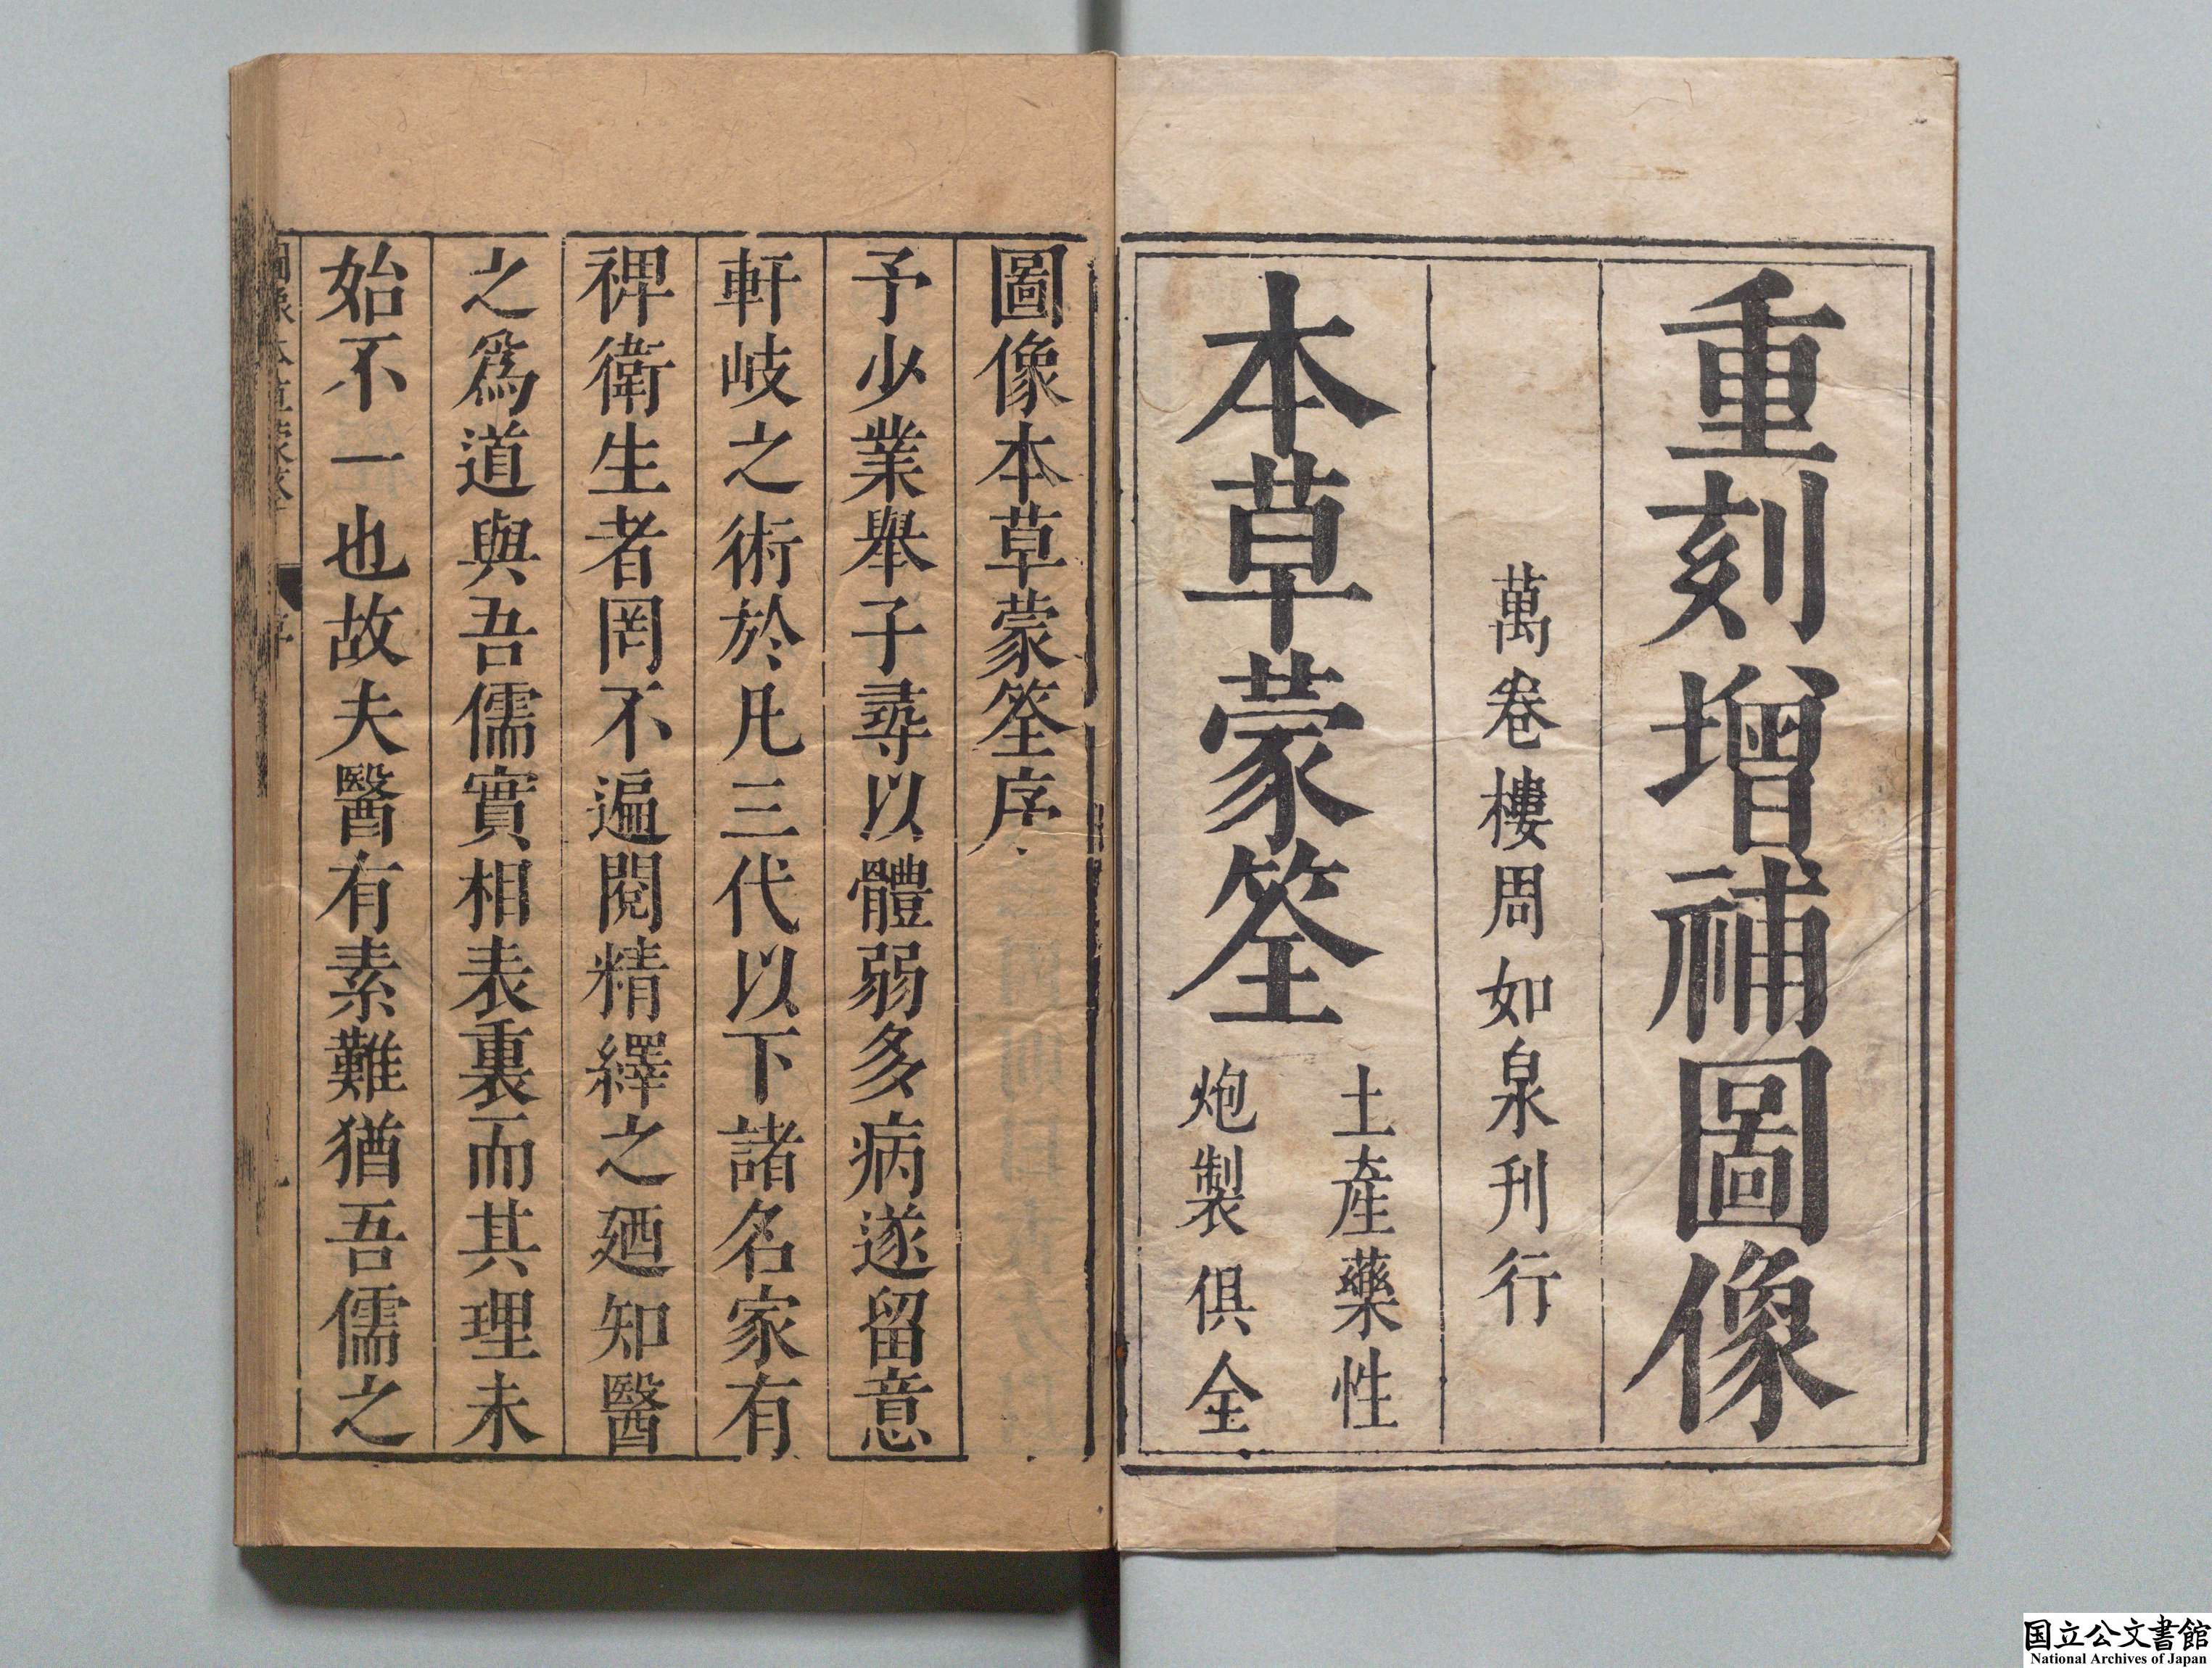 重刻增補圖像
萬卷樓周如泉刊行
本草蒙筌
土產藥性
炮製俱全
圖像本草蒙筌序
予少業舉子尋以體弱多病遂留意
軒岐之術於凡三代以下諸名家有
裨衛生者罔不遍閱精繹之廼知醫
之爲道與吾儒實相表裏而其理未
始不一也故夫醫有素難猶吾儒之
国立公文書館
National Archives of Japan